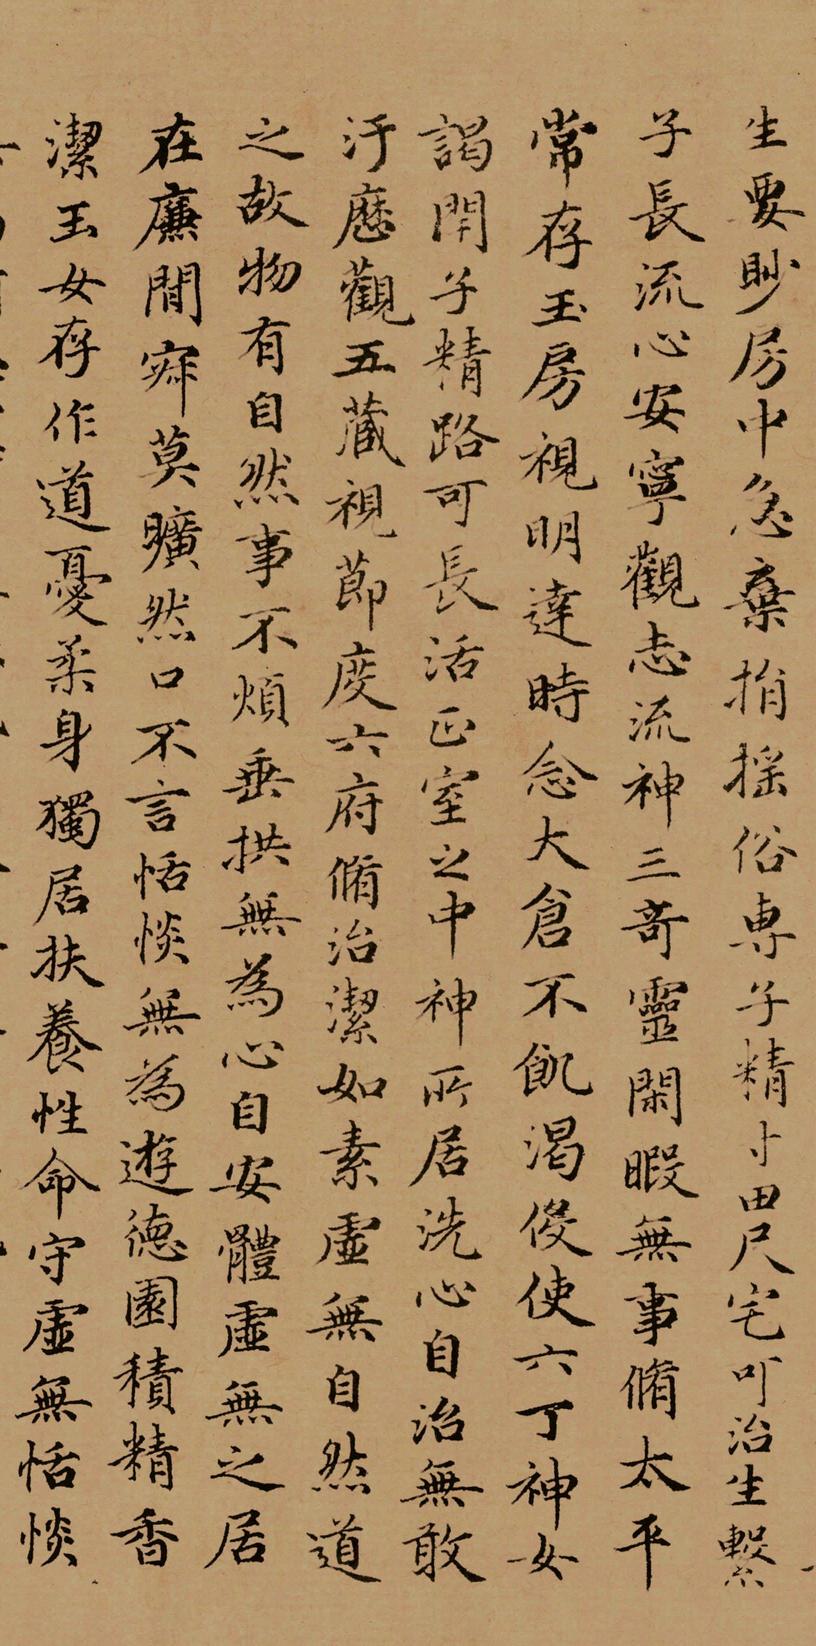 生要眇房中急棄捐搖俗專子精寸田尺宅可治生繫
子長流心安寧觀志流神三奇靈閑暇無事脩太平
常存玉房視明達時念大倉不飢渴役使六丁神女
謁閇子精路可長活正室之中神所居洗心自治無敢
汙歷觀五藏視節度六府脩治潔如素虛無自然道
之故物有自然事不煩垂拱無為心自安體虛無之居
在廉間寂莫曠然口不言恬惔無為遊德園積精香
潔玉女存作道憂柔身獨居扶養性命守虛無恬惔